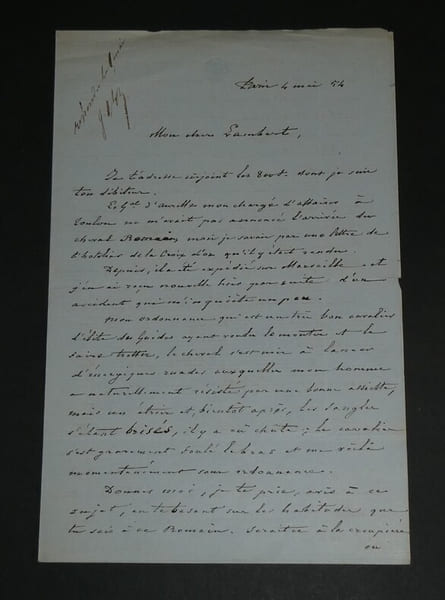 Paris 4 mai 54
Mon cher Lambert,
Je t'adresse ci-joint les dont je suis
ton débiteur.
Le Gal d'Aurelles mon chargé d'affaires à
Toulon ne m'avait pas annoncé l'arrivée du
cheval Romain, mais je savais par une lettre de
l'hôtelier de la Croix d'or qu'il y était rendu.
Depuis, il a été expédié sur Marseille et
j'en ai reçu nouvelle hier par suite d'un
accident qui m'inquiète un peu.
Mon ordonnance qui est un très bon cavalier
d'élite des Guides ayant voulu le monter et le
faire trotter, le cheval s'est mis à lancer
d'énergiques ruades auxquelles mon homme
a naturellement résisté par une bonne assiette;
mais un étrier et, bientôt après, les sangles
s'étant brisés, il y a eu chute; le cavalier
s'est gravement foulé le bras et me voilà
momentanément sans ordonnance.
Donnes moi, je te prie, avis à ce
sujet, en te basant sur les habitudes que
tu sais à ce Romain. Serait-ce à la croupière
ou